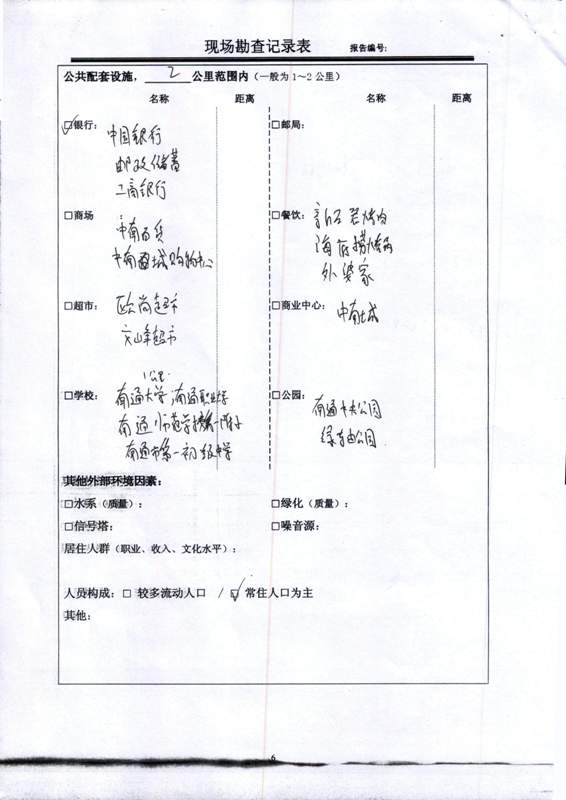 现场勘查记录表 报告编号:
公共配套设施, 2 公里范围内（一般为1～2公里）
名称 距离 名称 距离
□银行: ✓ 中国银行
邮政储蓄
工商银行
□邮局:
□商场 中南百货
中南城购物中心
□餐饮: 烤肉
海底捞火锅
外婆家
□超市: 欧尚超市
文峰超市
□商业中心: 中南城
□学校: 1公里
南通大学，南通职业大学
南通师范学校附小
南通市第一初级中学
□公园: 南通中央公园
公园
其他外部环境因素:
□水系（质量）: □绿化（质量）:
□信号塔: □噪音源:
居住人群（职业、收入、文化水平）:
人员构成: □ 较多流动人口 / ☑ 常住人口为主
其他:
6